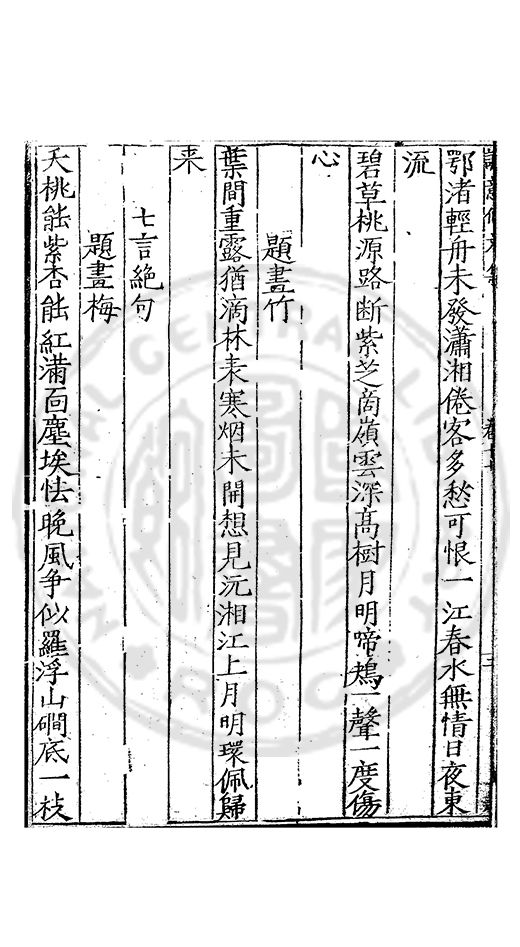 鄂渚輕舟未發瀟湘倦客多愁可恨一江春水無情日夜東
流
碧草桃源路断紫芝啇嶺雲深髙樹月明啼鴂一聲一度傷
心
題畫竹
葉間重露猶滴林表寒烟未開想見沅湘江上月明環佩歸
来
七言絶句
題畫梅
夭桃能紫杏能紅滿面塵埃怯晚風争似羅浮山磵底一枝